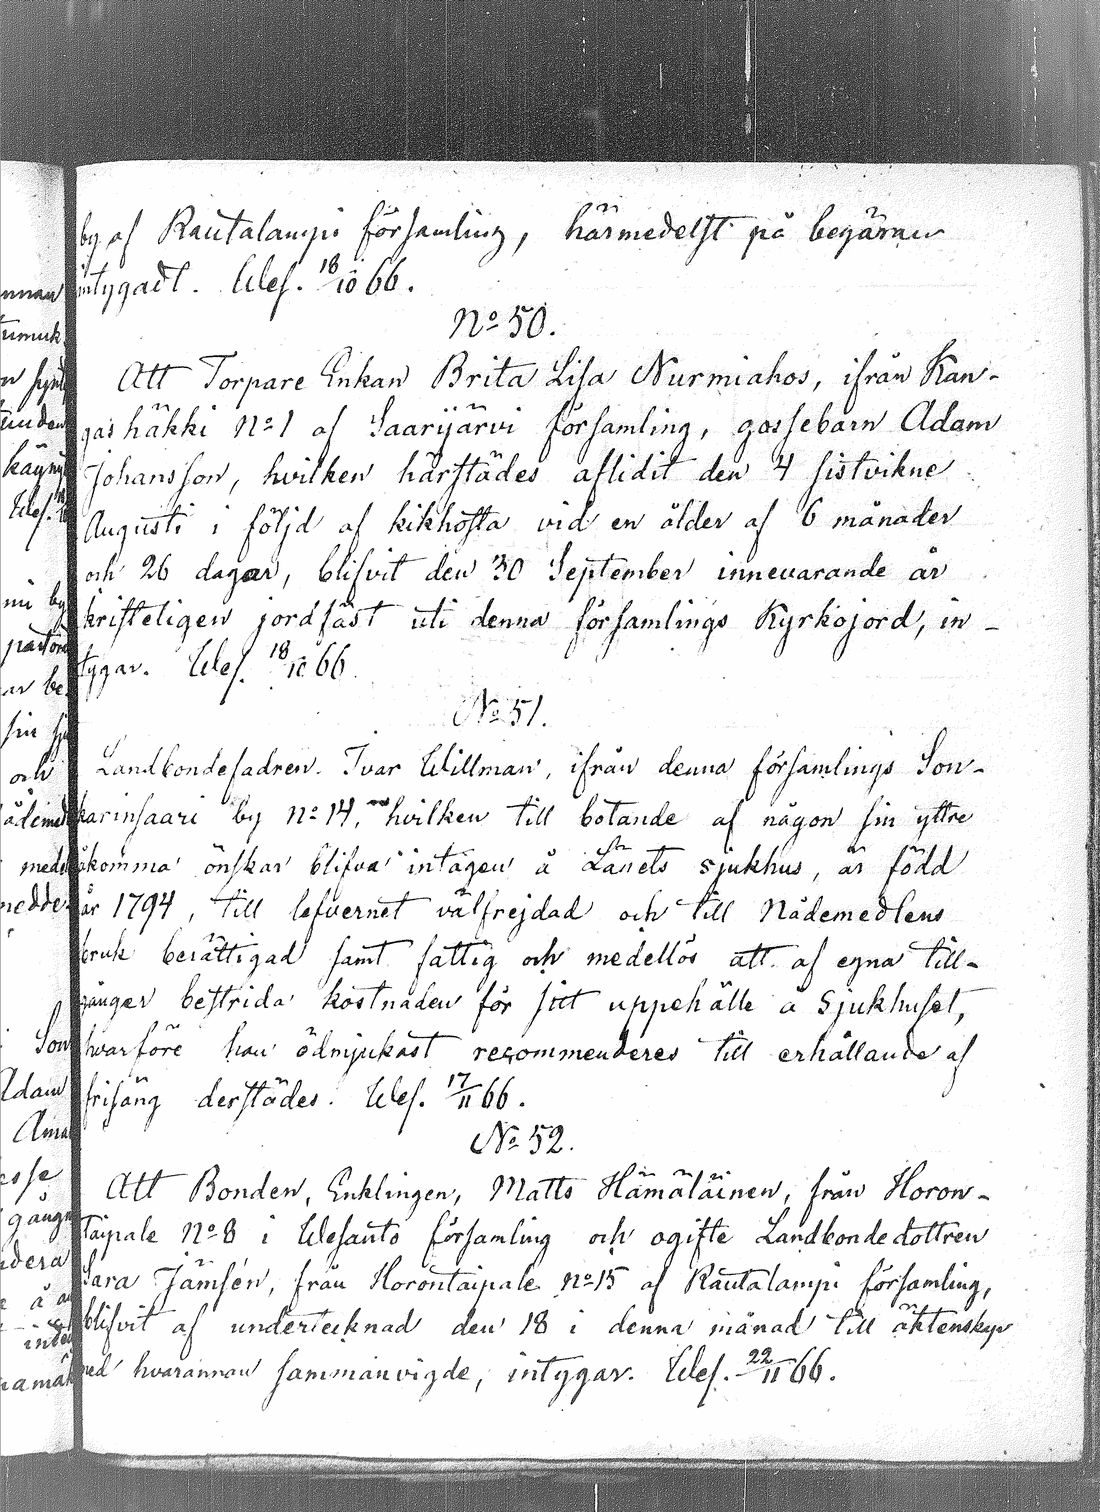 by af Rautalampi församling, härmedelst på begäran
intygadt. Wes. 18/10 66.
No 50.
Att Torpare Enkan Brita Lisa Nurmiahos, ifrån Kan-
gashäkki No 1 af Saarijärvi församling, gossebarn Adam
Johansson, hvilken härstädes aflidit den 4 sistvikne
Augusti i följd af kikhosta vid en ålder af 6 månader
och 26 dagar, blifvit den 30 September innevarande år
kristeligen jordfäst uti denna församlings Kyrkojord, in-
tygar. Wes. 18/10 66.
No 51.
Landbondefadren Ivar Willman, ifrån denna församlings Son-
karinsaari by No 14, hvilken till botande af någon sin yttre
åkomma önskar blifva intagen å Länets sjukhus, är född
år 1794, till lefvernet välfrejdad och till Nådemedlens
bruk berättigad samt fattig och medellös att af egna till-
gånger bestrida kostnaden för sitt uppehälle å Sjukhuset,
hvarföre han ödmjukast recommenderes till erhållande af
frisäng derstädes. Wes. 17/11 66.
No 52.
Att Bonden, Enklingen, Matts Hämäläinen, från Horon-
taipale No 8 i Wesanto församling och ogifte Landbondedottren
Sara Jämsén, från Horontaipale No 15 af Rautalampi församling,
blifvit af undertecknad den 18 i denna månad till äktenskap
med hvarannan sammanvigde, intygar. Wes. 22/11 66.